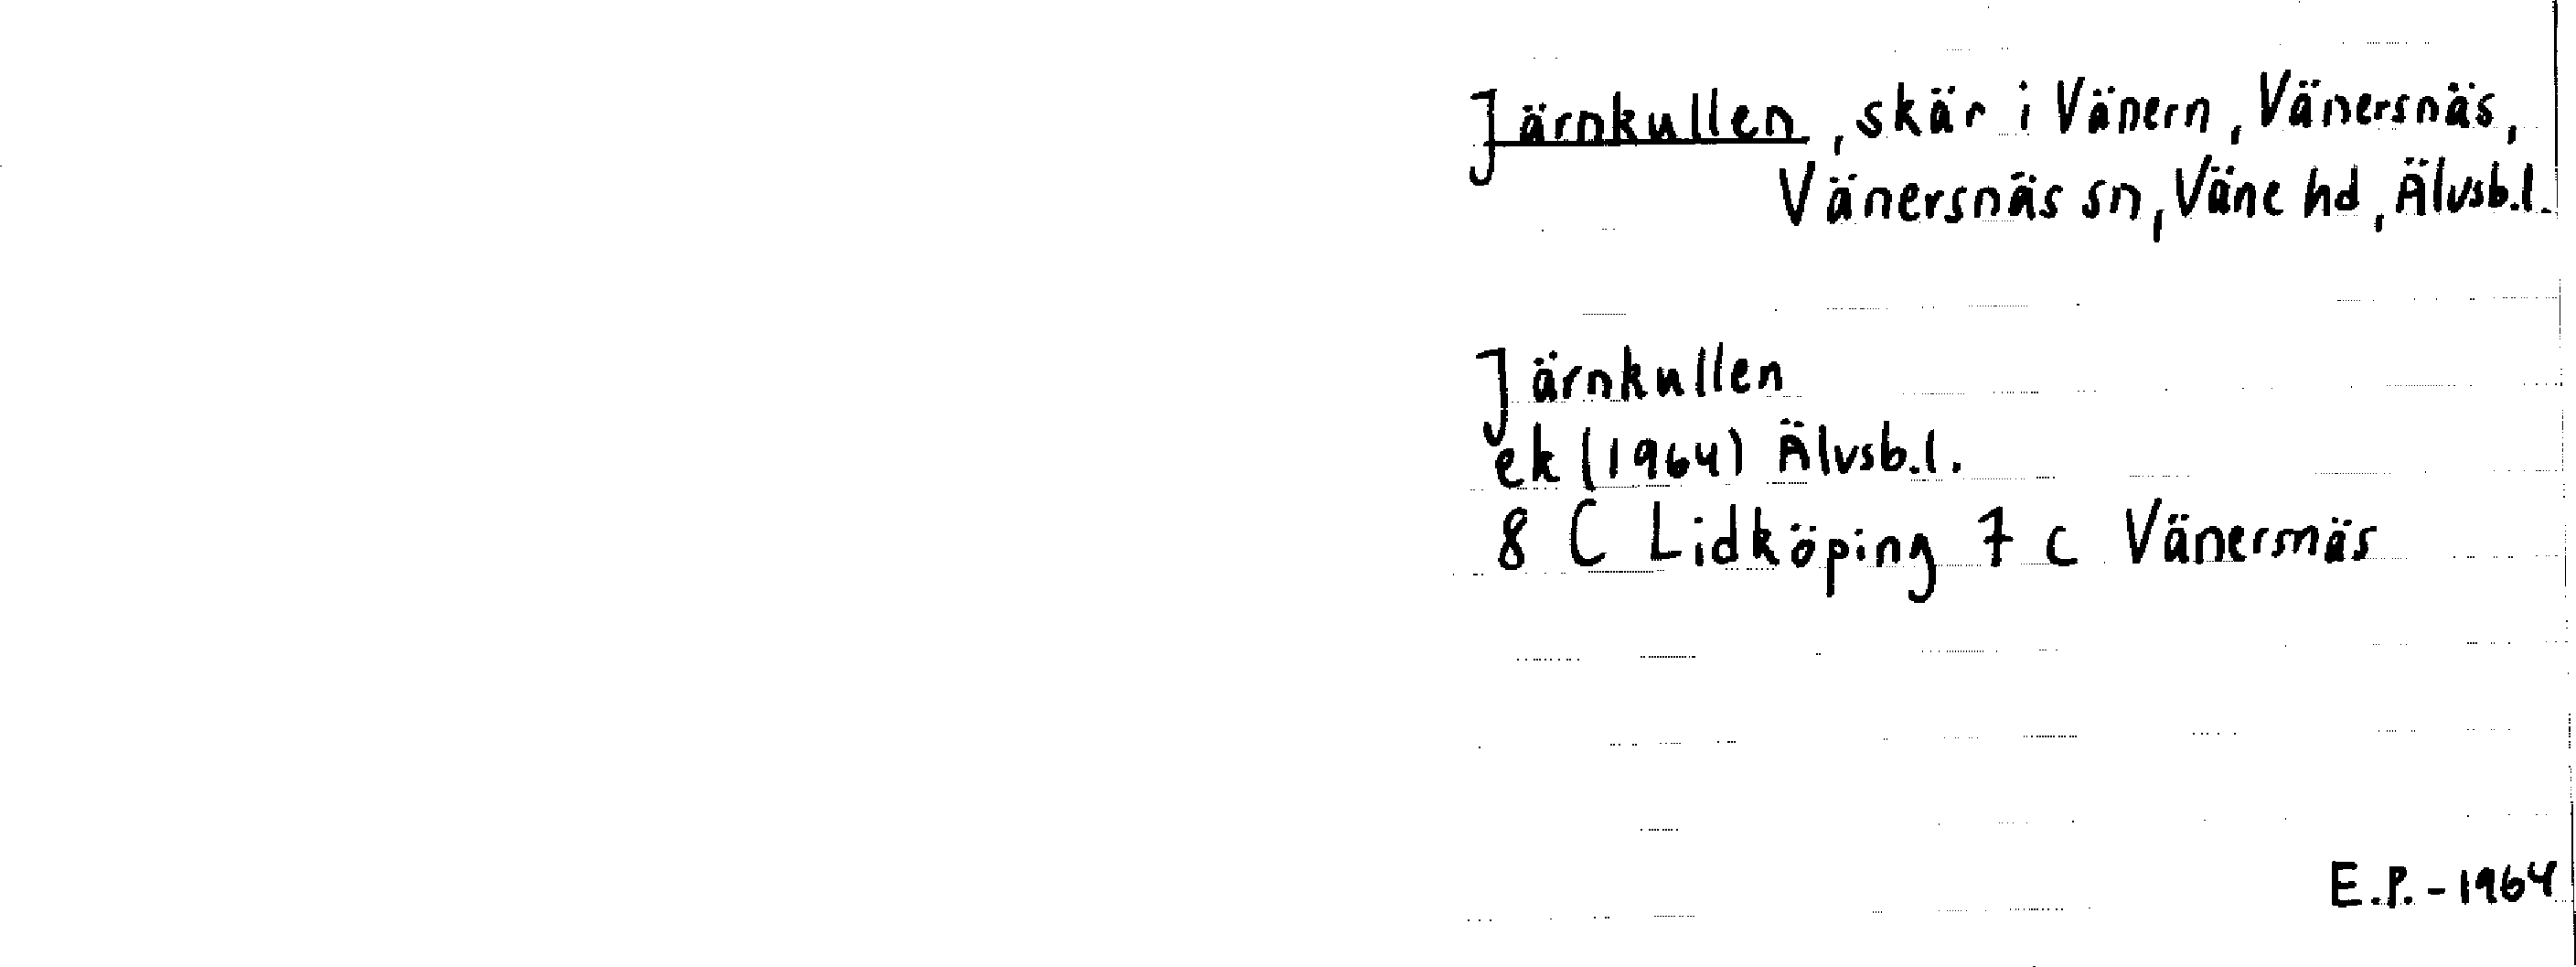 Järnkullen, skär i Vänern, Vänersnäs,
Vänersnäs sn, Väne hd, Älvsb.l.
Järnkullen
ek (1964) Älvsb.l.
8 C Lidköping 7 c Vänersnäs
E.P. - 1964